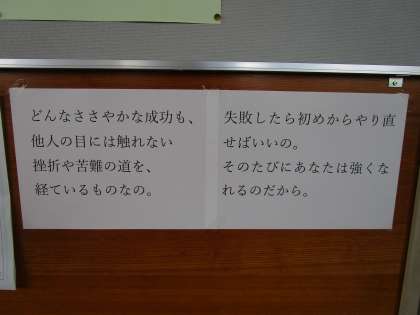 どんなささやかな成功も、
他人の目には触れない
挫折や苦難の道を、
経ているものなの。
失敗したら初めからやり直
せばいいの。
そのたびにあなたは強くな
れるのだから。